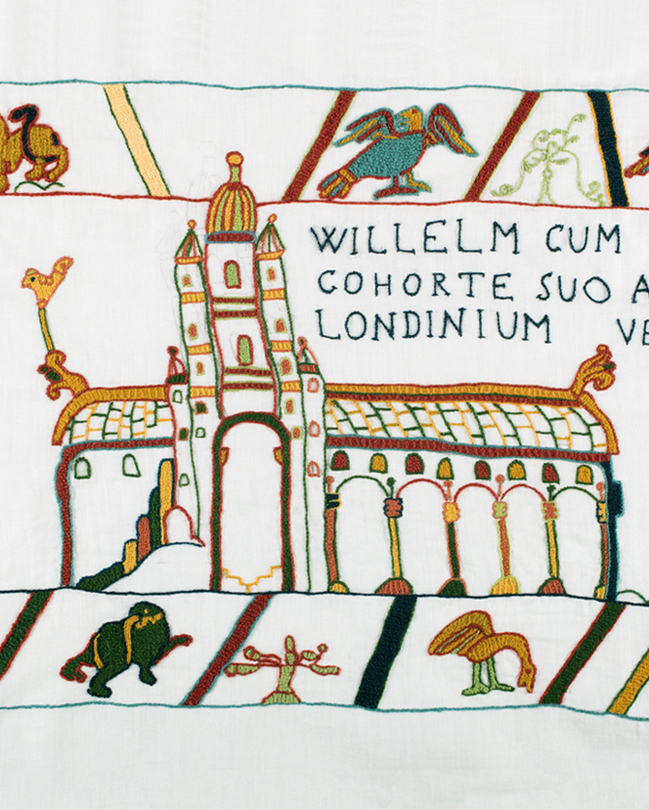 WILLELM CUM
COHORTE SUO A
LONDINIUM VE